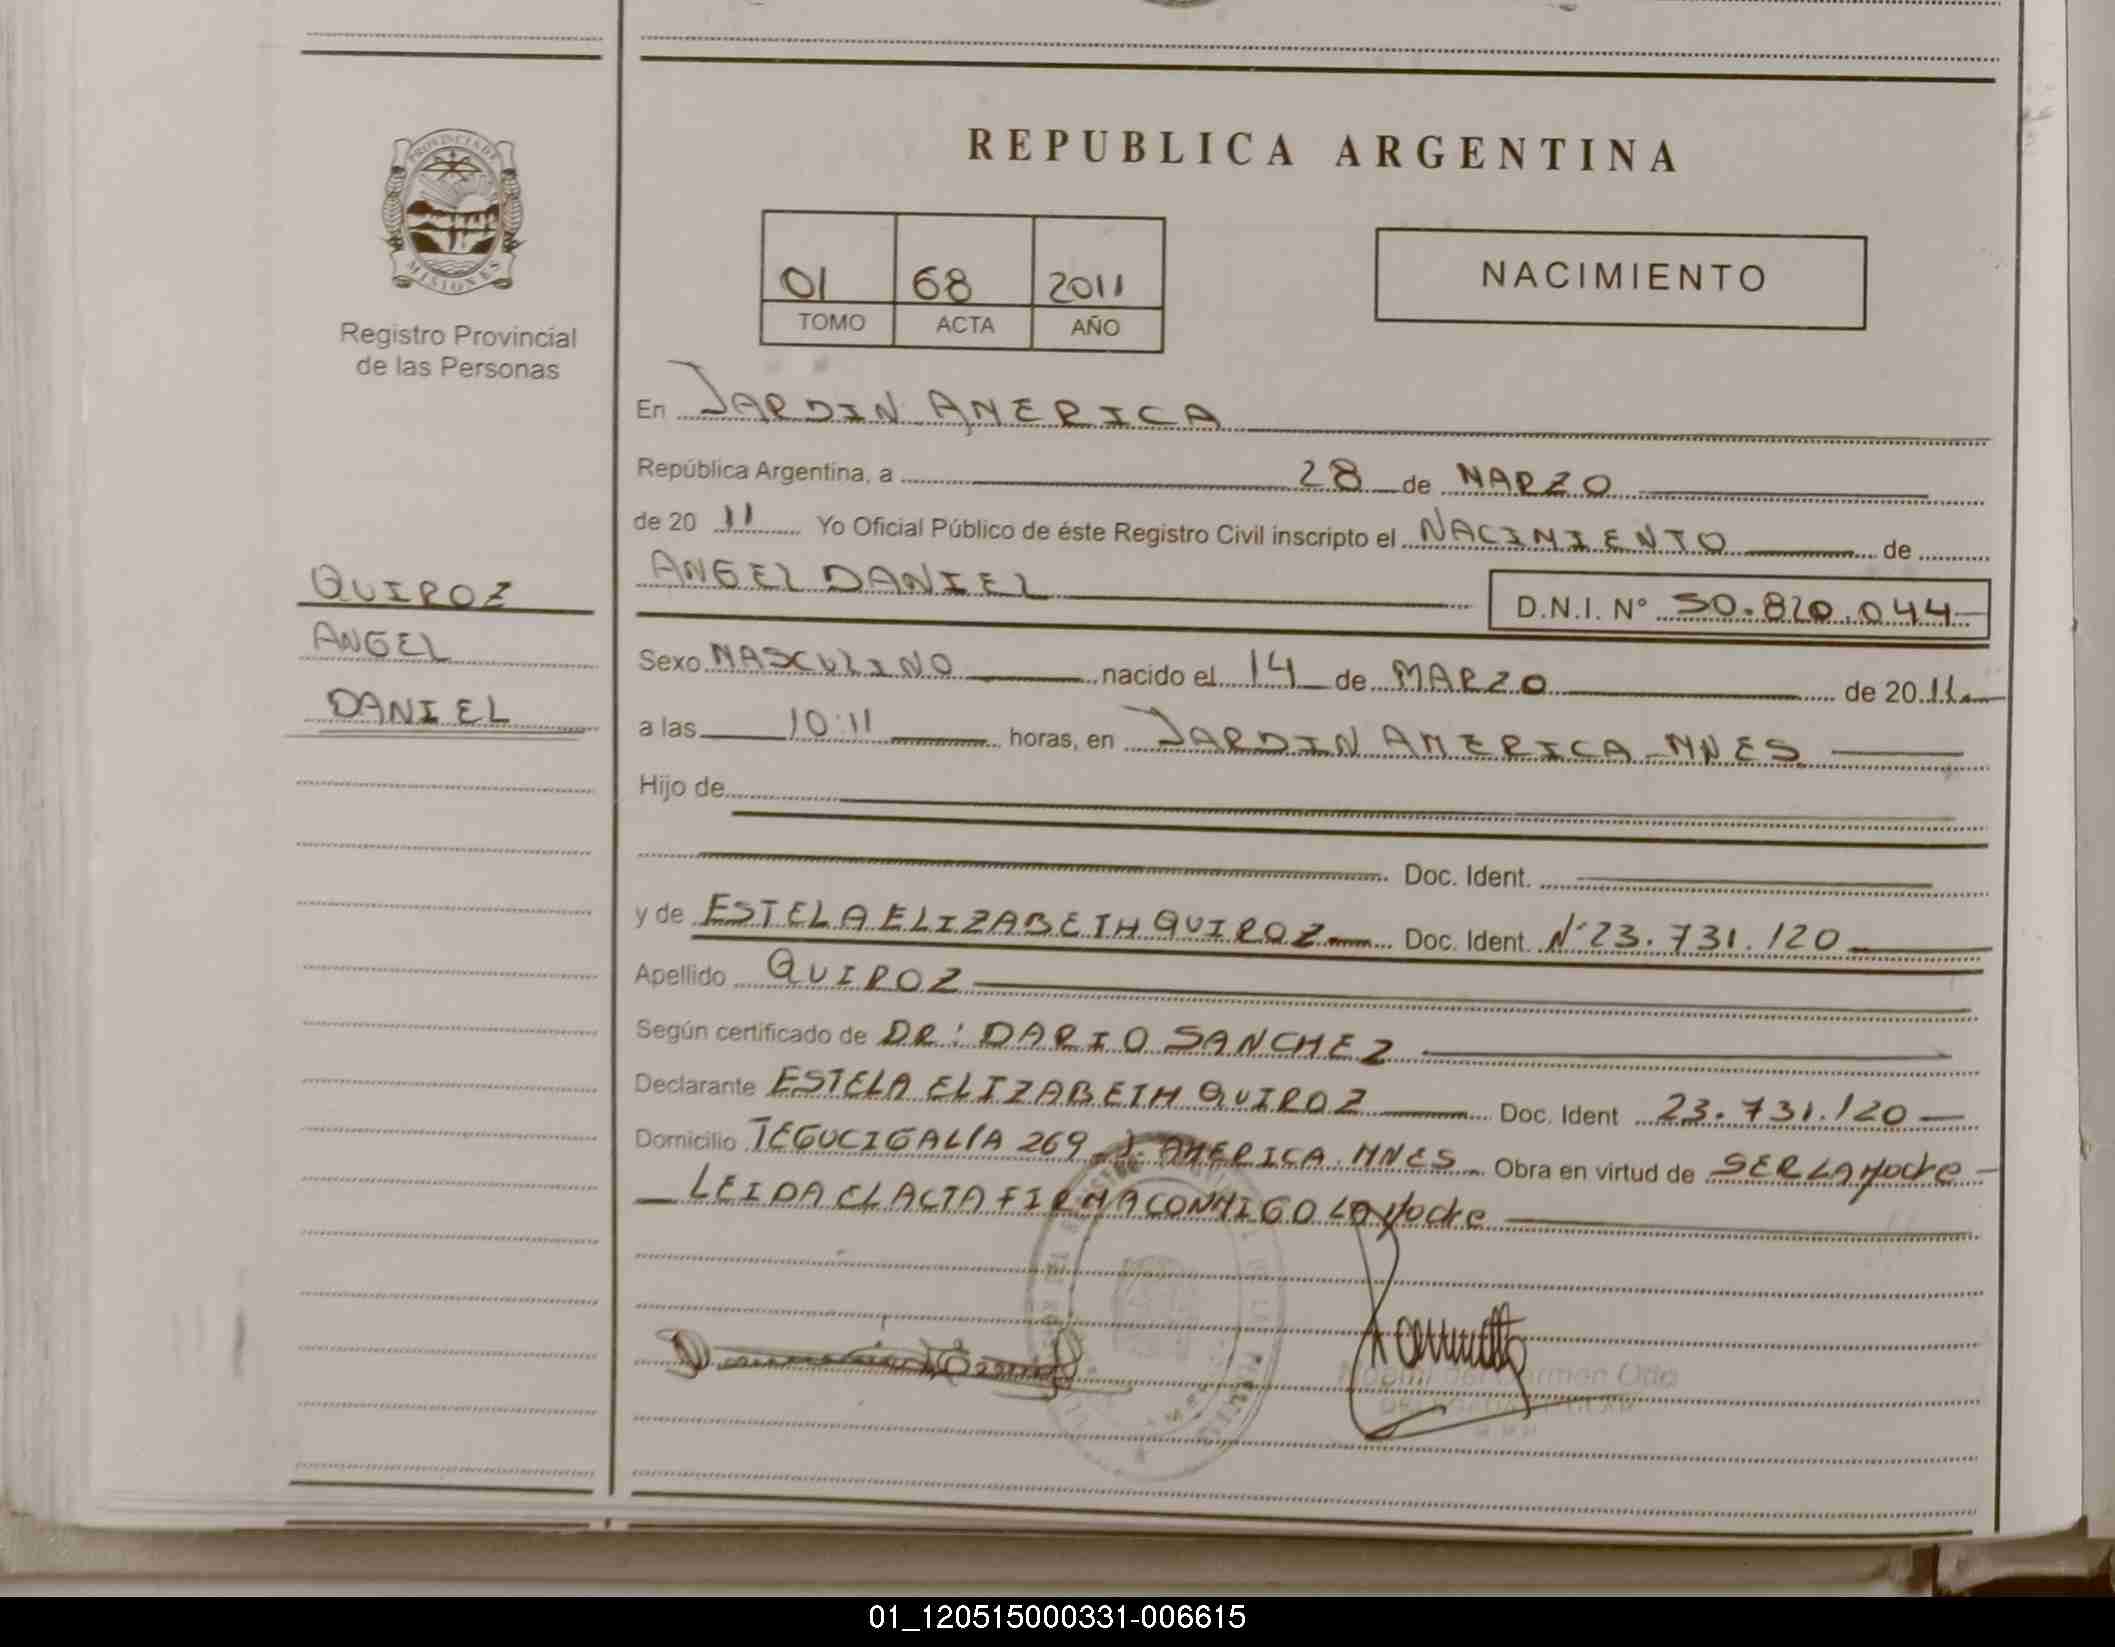 PROVINCIA DE
MISIONES
Registro Provincial
de las Personas
QUIROZ
ANGEL
DANIEL
REPUBLICA ARGENTINA
01 68 2011
TOMO ACTA AÑO
NACIMIENTO
En JARDIN AMERICA
República Argentina, a 28 de MARZO
de 20 11 Yo Oficial Público de éste Registro Civil inscripto el NACIMIENTO de
ANGEL DANIEL D.N.I. N° 50.820.044
Sexo MASCULINO nacido el 14 de MARZO de 20 11
a las 10:11 horas, en JARDIN AMERICA - MNES
Hijo de
Doc. Ident.
y de ESTELA ELIZABETH QUIROZ Doc. Ident. N° 23.731.120
Apellido QUIROZ
Según certificado de DR: DARIO SANCHEZ
Declarante ESTELA ELIZABETH QUIROZ Doc. Ident 23.731.120
Domicilio TEGUCIGALPA 269 J. AMERICA MNES Obra en virtud de SER LA Madre
LEIDA EL ACTA FIRMA CONMIGO LA Madre
01_120515000331-006615